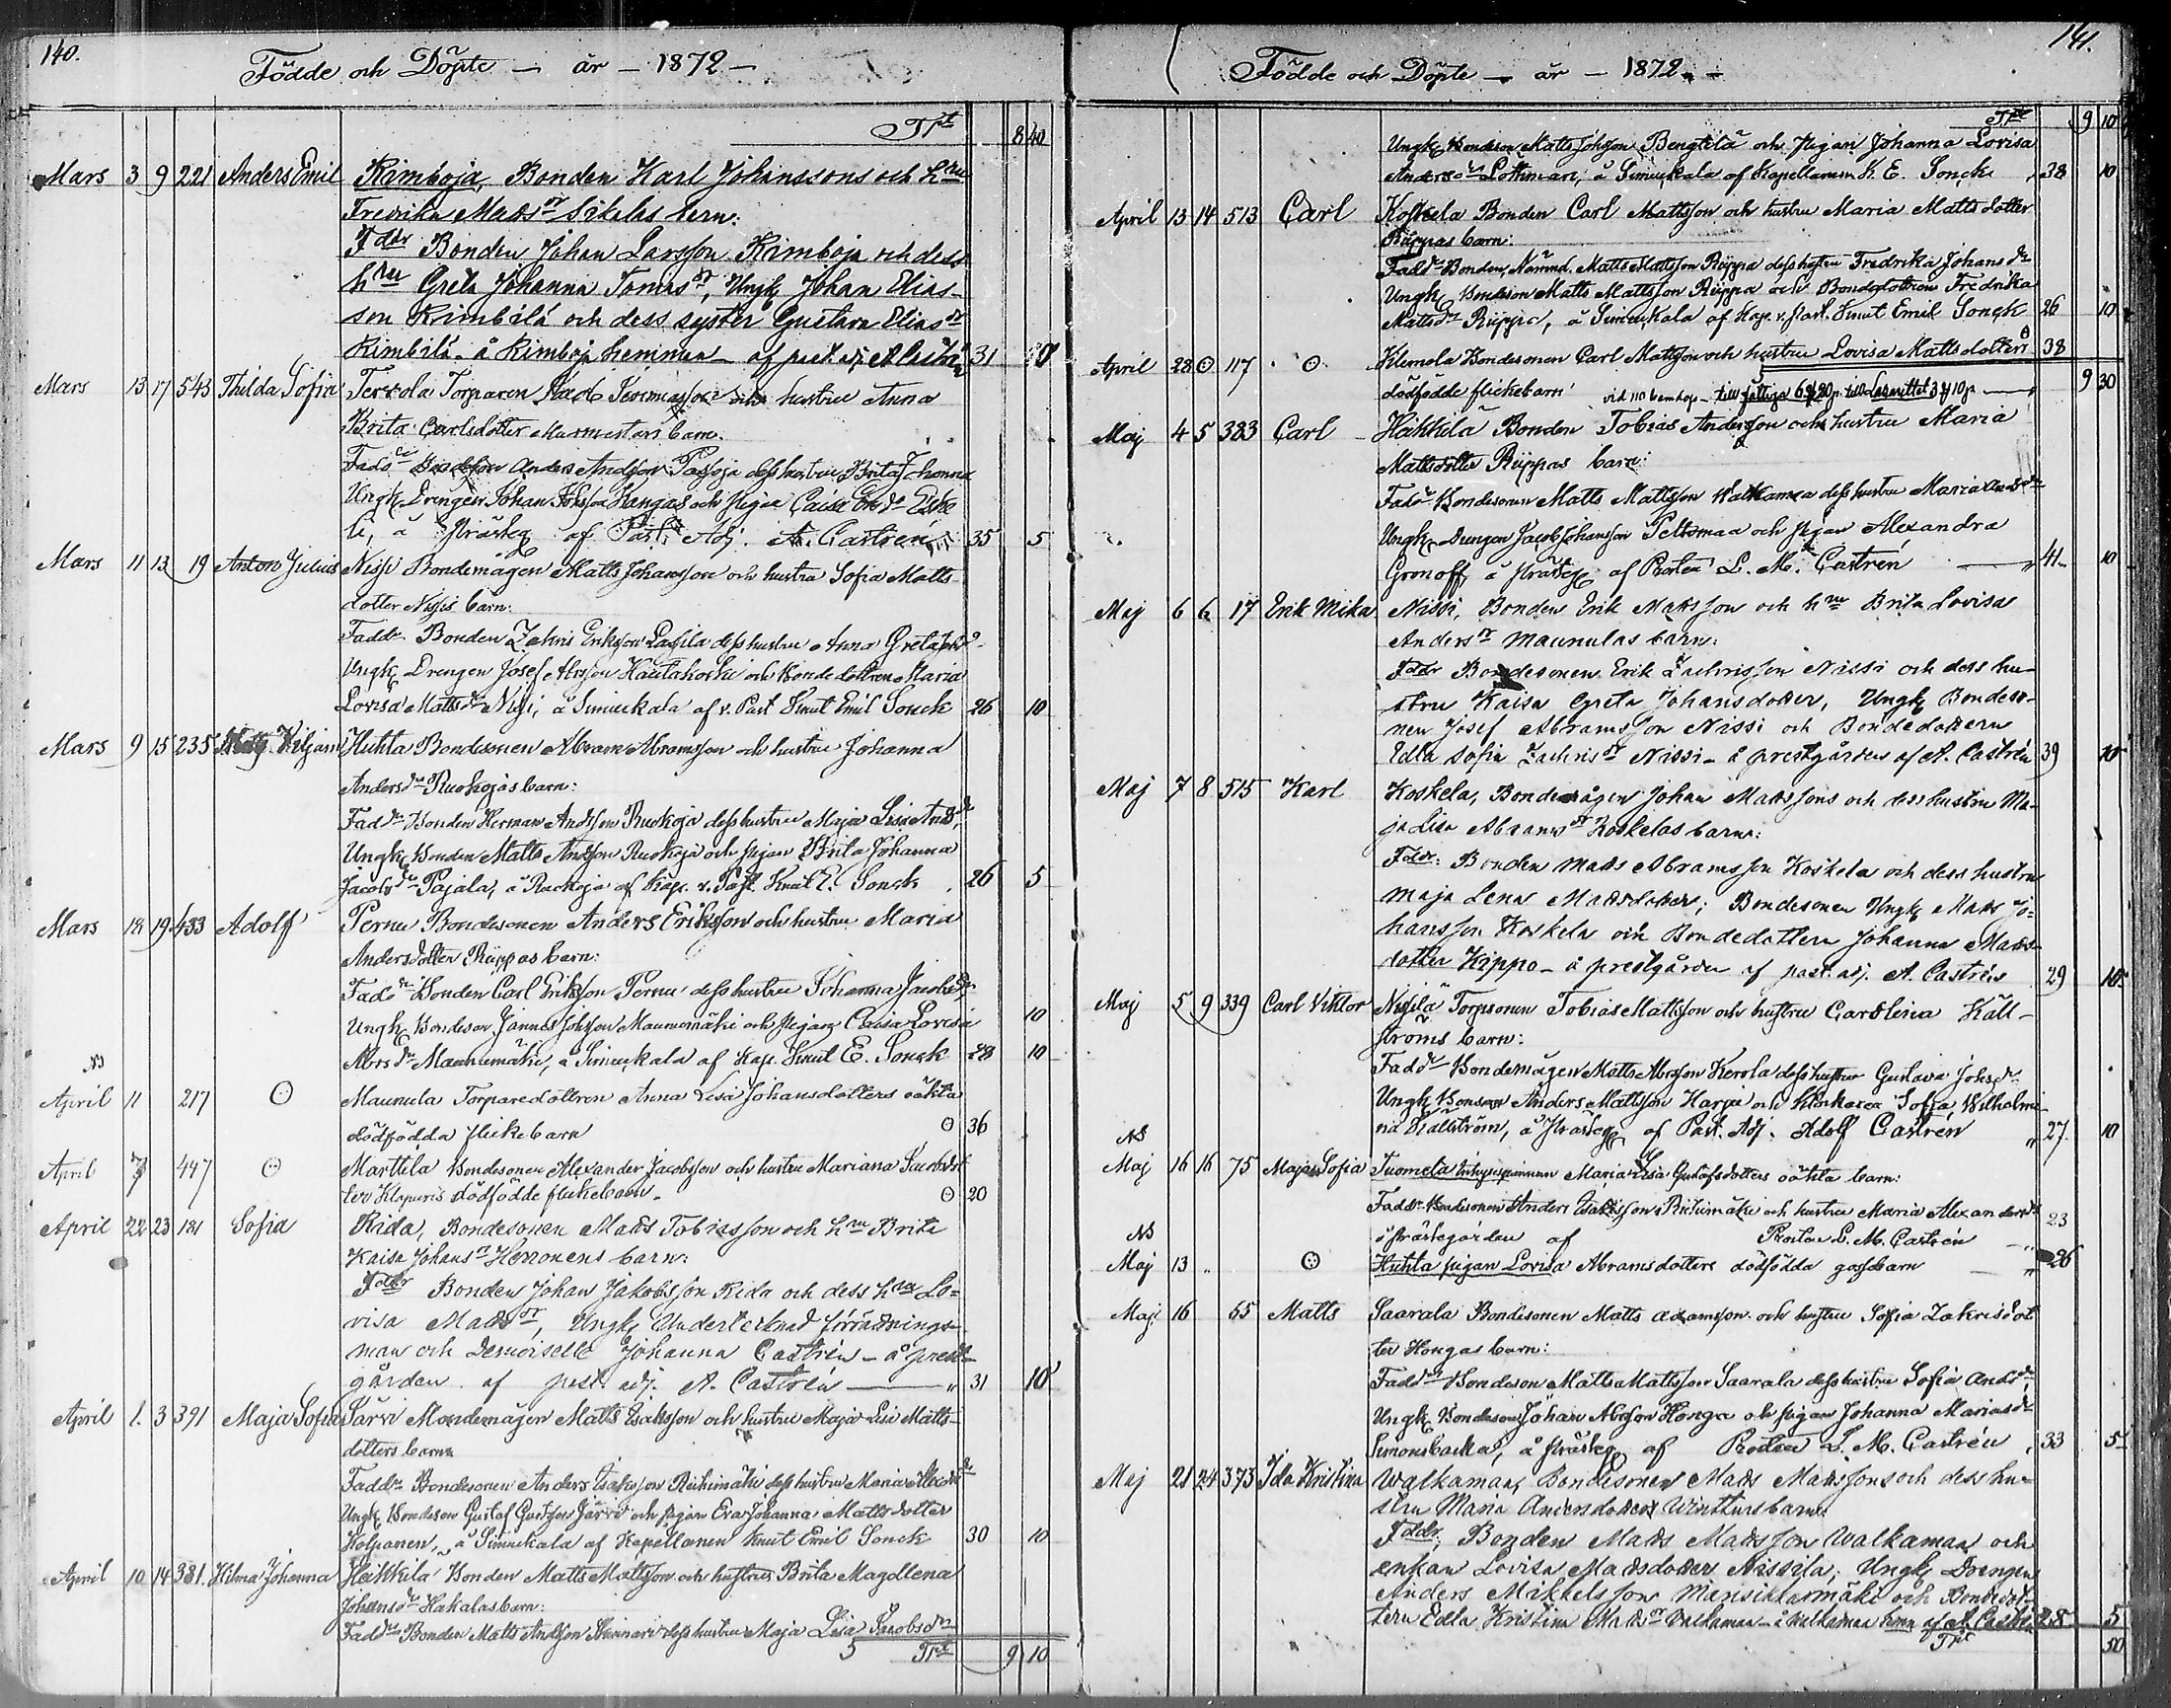 140.
Födde och Döpte — år — 1872 —
Trpt 8 40
Mars 3 9 221 Anders Emil Rimboja, Bonden Karl Johanssons och hru
Fredrika Matsdr Sikelas barn:
Fddr Bonden Johan Larsson Rimboja och dess
hru Greta Johanna Tomasdr, Ungk Johan Elias-
son Rimbilä och dess syster Gustava Eliasdr
Rimbilä – å Rimboja hemman – af past. adj. A. Castrén 31
Mars 13 17 543 Thilda Sofia Torparen och hustru Anna
Brita Carlsdotter Murmestars barn.
Anders Andsson dess hustru Brita Johanna
Ungk Drengen Johan Johsson Kangas och pigan Caisa
å Prästeg af Past. Adj. A. Castrén 35 5
Mars 11 13 19 Anton Julius Nissi Bondemågen Matts Johansson och hustru Sofia Matts-
dotter Nissis barn:
Faddr Bonden Zakris Eriksson Lassila dess hustru Anna Greta
Ungk Drengen Josef Abrsson Hautakoski och Bondedottren Maria
Lovisa Mattsdr Nissi, å Simuskala af v. Past Knut Emil Sonck 26 10
Mars 9 15 235 Viljam Huhta Bondesonen Abram Abramsson och hustru Johanna
Andersdr Ruokojas barn:
Faddr Bonden Herman Andsson Ruokoja dess hustru Maja Lisa Andsdr
Ungk Bonden Matts Andsson Ruokoja och pigan Brita Johanna
Jacobsdr Pajala, å Ruokoja af Kap. v. Past. Knut E. Sonck 26 5
Mars 18 19 433 Adolf Pernu Bondesonen Anders Eriksson och hustru Maria
Andersdotter Riippas barn:
Faddr Bonden Carl Eriksson Pernu dess hustru Johanna Jacobsdr
Ungk Bondeson Jannes Johsson Maunumäki och pigan Caisa Lovisa 10
Abrsdr Maunumäki, å Simuskala af Kap. Knut E. Sonck 28 10
NB
April 11 217 ⊙ Maunula Torparedottren Anna Lisa Johansdotters oäkta
dödfödda flickebarn ⊙ 36
April 7 447 ⊙ Marttila Bondesonen Alexander Jacobsson och hustru Mariana Jacobsdot
ter Klapuris dödfödde flickebarn. ⊙ 20
April 22 23 181 Sofia Rida, Bondesonen Matts Tobiasson och hru Brita
Kaisa Johansdr Herronens barn:
Fddr Bonden Johan Jakobsson Rida och dess hru Lo-
visa Mattsdr, Ungk Undertecknad förrättnings-
man och Demoiselle Johanna Castrén – å prest-
gården af past. adj. A. Castrén — " 31 10
April 1. 3 391 Maja Sofia Järvi Bondemågen Matts Isaksson och hustru Maja Lisa Matts-
dotters barn
Faddr Bondesonen Anders Isaksson Riihimäki dess hustru Maria Alexdr
Ungk Bondeson Gustaf Gustfsson Järvi och pigan Eva Johanna Mattsdotter
Kolpanen, å Simuskala af Kapellanen Knut Emil Sonck 30 10
April 10 14 381. Hilma Johanna Heikkilä Bonden Matts Mattsson och hustrus Brita Magdlena
Johansdr Hakalas barn:
Faddr Bonden Matts Andsson dess hustru Maja Lisa Jacobsdr
Trpt 9 10
141.
Födde och Döpte — år — 1872. —
Trpt 9 10
Ungk Bondeson Matts Johsson Bengtilä och Pigan Johanna Lovisa
Andersdr Lothman, å Simuskala af Kapellanen K. E. Sonck 38 10
April 13 14 513 Carl Koskela Bonden Carl Mattsson och hustru Maria Mattsdotter
Riippas barn:
Faddr Bonden, Nämnd. Matts Mattsson Riippa dess hustru Fredrika Johansdr
Ungk Bondeson Matts Mattsson Riippa och Bondedottren Fredrika
Mattsdr Riippa, å Simuskala af Kap. v. Past. Knut Emil Sonck 26 10
April 28 ⊙ 117 ⊙ Klemola Bondesonen Carl Mattsson och hustru Lovisa Mattsdotters 38
dödfödde flickebarn 9 30
Maj 4 5 383 Carl Häkkilä Bonden Tobias Andersson och hustru Maria
Mattsdotter Riippas barn:
Faddr Bondesonen Matts Mattsson Walkama dess hustru Maria Andsdr
Ungk Drengen Jacob Johansson Peltomaa och pigan Alexandra
Gronoff å Prästeg af Prosten L. M. Castrén — " 41 10
Maj 6 6 17 Erik Mika Nissi, Bonden Erik Mattsson och hru Brita Lovisa
Andersdr Maunulas barn:
Fddr Bondesonen Erik Zachrisson Nissi och dess hu-
stru Kaisa Greta Johansdotter, Ungk Bondeso-
nen Josef Abramsson Nissi och Bondedottern
Edla Sofia Zachrisdr Nissi – å prestgården af A. Castrén 39 10
Maj 7 8 515 Karl Koskela, Bondemågen Johan Mattssons och dess hustru Ma-
ja Lisa Abramsdr Koskelas barn:
Fddr: Bonden Matts Abramsson Koskela och dess hustru
Maja Lena Mattsdotter; Bondesonen Ungk Matts Jo-
hansson Koskela och Bondedottern Johanna Matts-
dotter Kippo – å prestgården af past. adj. A. Castrén 29 10
Maj 5 9 339 Carl Viktor Nissilä Torpsonen Tobias Mattsson och hustru Carolina Käll-
ströms barn:
Faddr Bondemågen Matts Abrsson Kerola dess hustru Gustava Johsdr
Ungk Bonson Anders Mattsson Harju och Klockaren Sofia Wilhelmi-
na Källström, å Prästeg af Past. Adj. Adolf Castrén " 27. 10
NB
Maj 16 16 75 Maja Sofia Tuomela Maria Lisa Gustafsdotters oäkta barn:
Faddr Bondesonen Anders Isaksson Riihimäki och hustru Maria Alexandersdr 23
å Prästegården af Prosten L. M. Castrén
NB
Maj 13 " ⊙ Huhta pigan Lovisa Abramsdotters dödfödda gossbarn " 26
Maj 16 65 Matts Saarala Bondesonen Matts Adamsson och hustru Sofia Zakrisdot
ter Hongas barn:
Faddr Bondeson Matts Mattsson Saarala dess hustru Sofia Andsdr
Ungk Bondeson Johan Abrsson Honga och pigan Johanna Mariasdr
Simonsbacka, å Prästeg af Prosten L. M. Castrén 33 5
Maj 21 24 373 Ida Kristina Walkaman, Bondesonen Matts Mattssons och dess hu-
stru Maria Andersdotter Wintturs barn:
Fddr, Bonden Matts Mattsson Walkaman och
enkan Lovisa Mattsdotter Nissilä, Ungk Drengen
Anders Mikkelsson Mansikkamäki och Bondedot-
tern Edla Kristina Mattsdr Walkaman – å Walkaman hmn af A. Castrén 28 5
Trpt 50